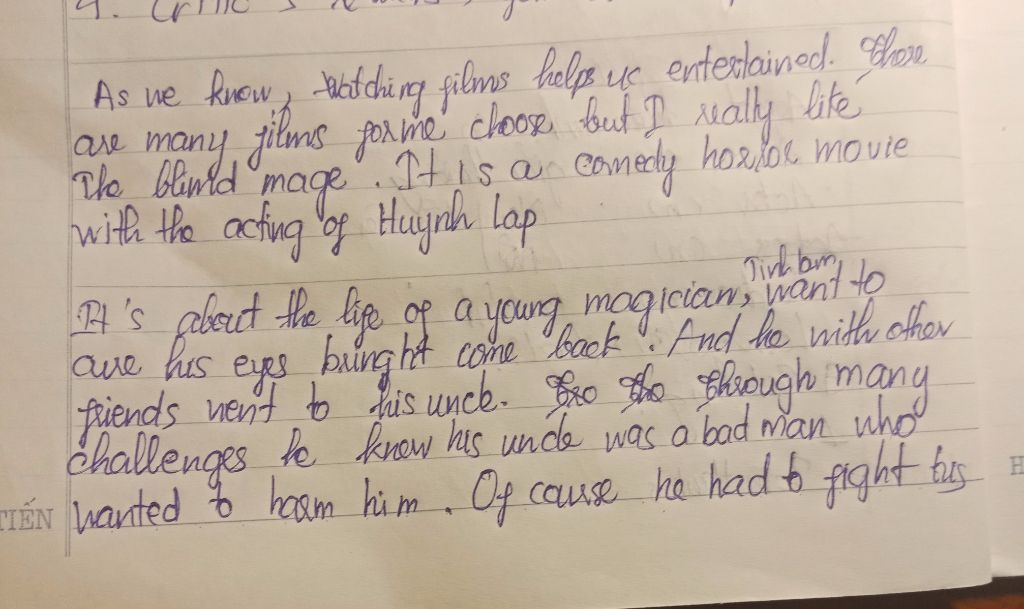 4. Critic's
As we know, Watching films helps us entertained. There
are many films for me choose but I really like
The blind mage. It is a comedy horror movie
with the acting of Huynh Lap
It's about the life of a young magician, Tinh Lam, want to
cure his eyes bright come back. And he with other
friends went to his uncle. Through many
challenges he knew his uncle was a bad man who
wanted to harm him. Of cause he had to fight his
TIẾN
H